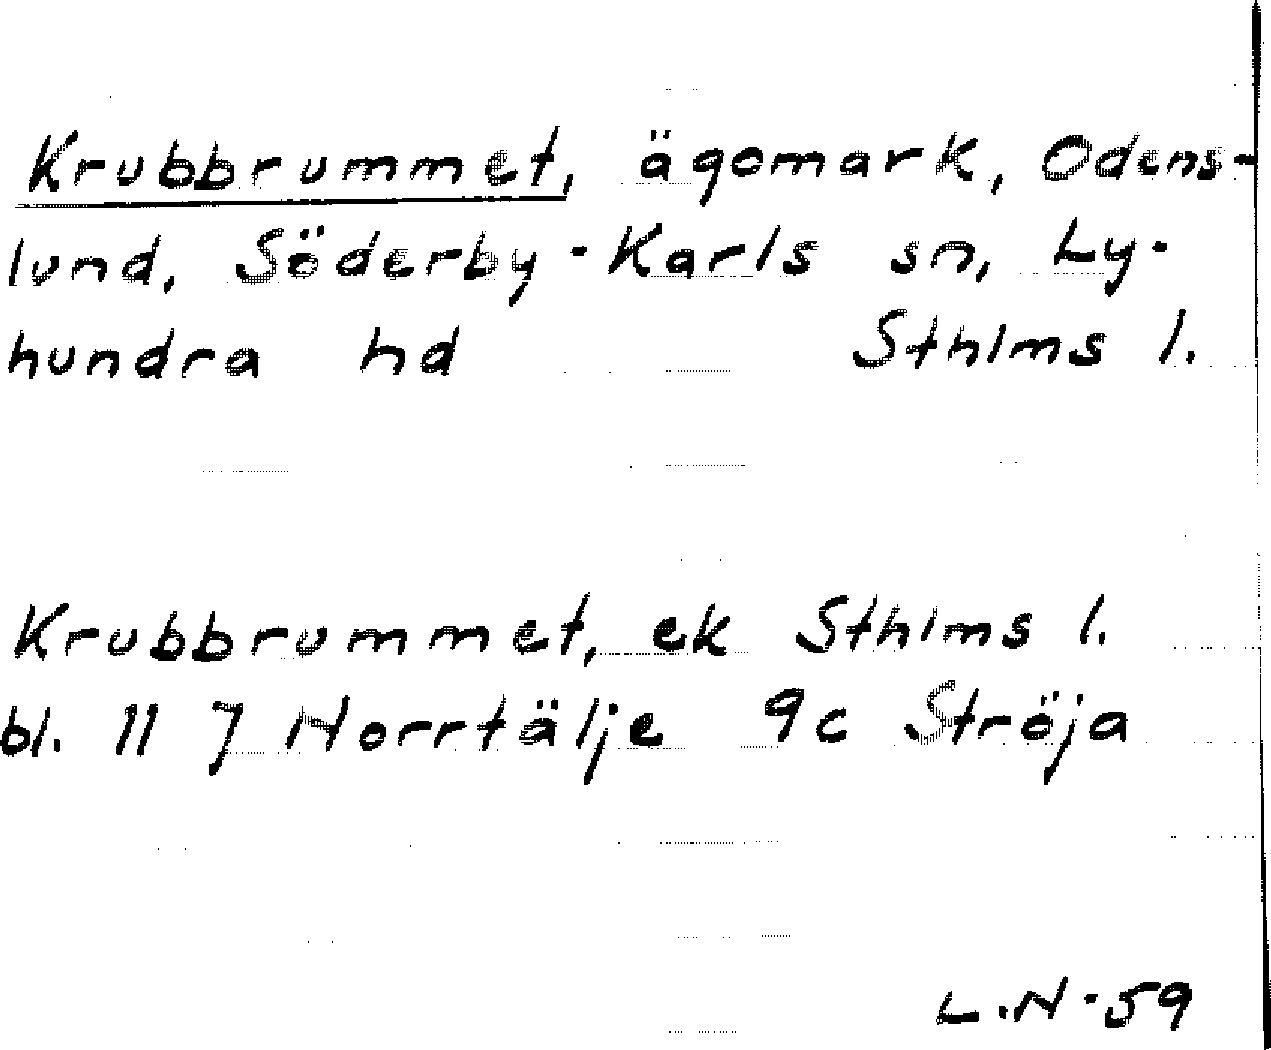 Krubbrummet, ägomark, Odens-
lund, Söderby-Karls sn, Ly-
hundra hd Sthlms l.
Krubbrummet, ek Sthlms l.
bl. 11 7 Norrtälje 9c Ströja
L.N-59